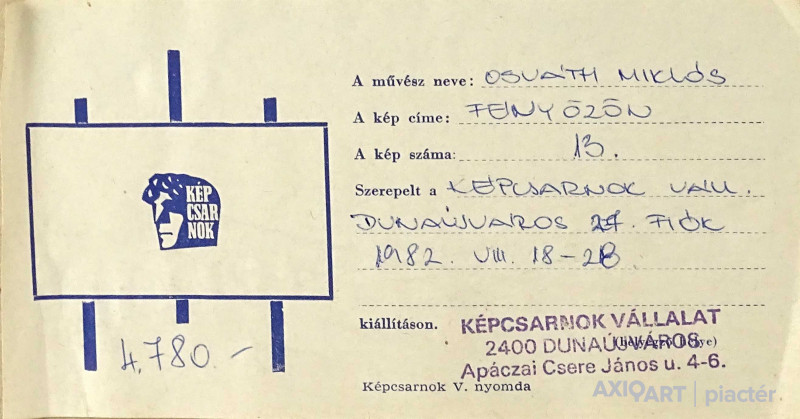 A művész neve: OSVÁTH MIKLÓS
A kép címe: FÉNYÖZÖN
A kép száma: 13.
Szerepelt a KÉPCSARNOK VÁLL.
DUNAÚJVÁROS 27. FIÓK
1982. VIII. 18-28
kiállításon.
KÉP
CSAR
NOK
4.780.-
KÉPCSARNOK VÁLLALAT
2400 DUNAÚJVÁROS
Apáczai Csere János u. 4-6.
Képcsarnok V. nyomda
AXIOART | piactér